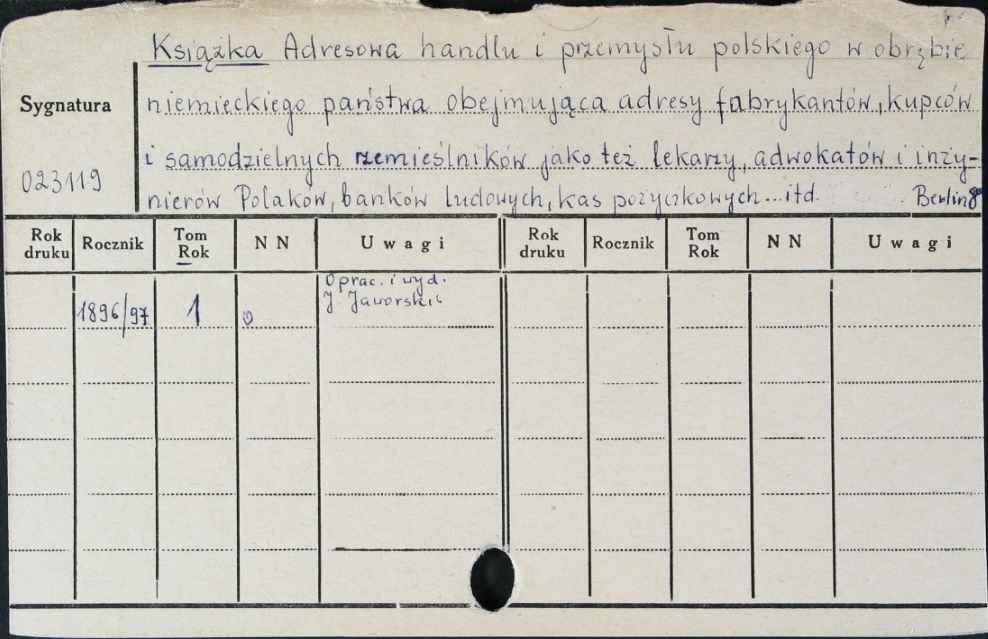 Książka Adresowa handlu i przemysłu polskiego w obrębie
Sygnatura niemieckiego państwa obejmująca adresy fabrykantów, kupców
i samodzielnych rzemieślników jako też lekarzy, adwokatów i inży-
023119 nierów Polaków, banków ludowych, kas pożyczkowych ... itd. Berlin
Rok druku Rocznik Tom Rok NN Uwagi Rok druku Rocznik Tom Rok NN Uwagi
Oprac. i wyd.
1896/97 1 J. Jaworski